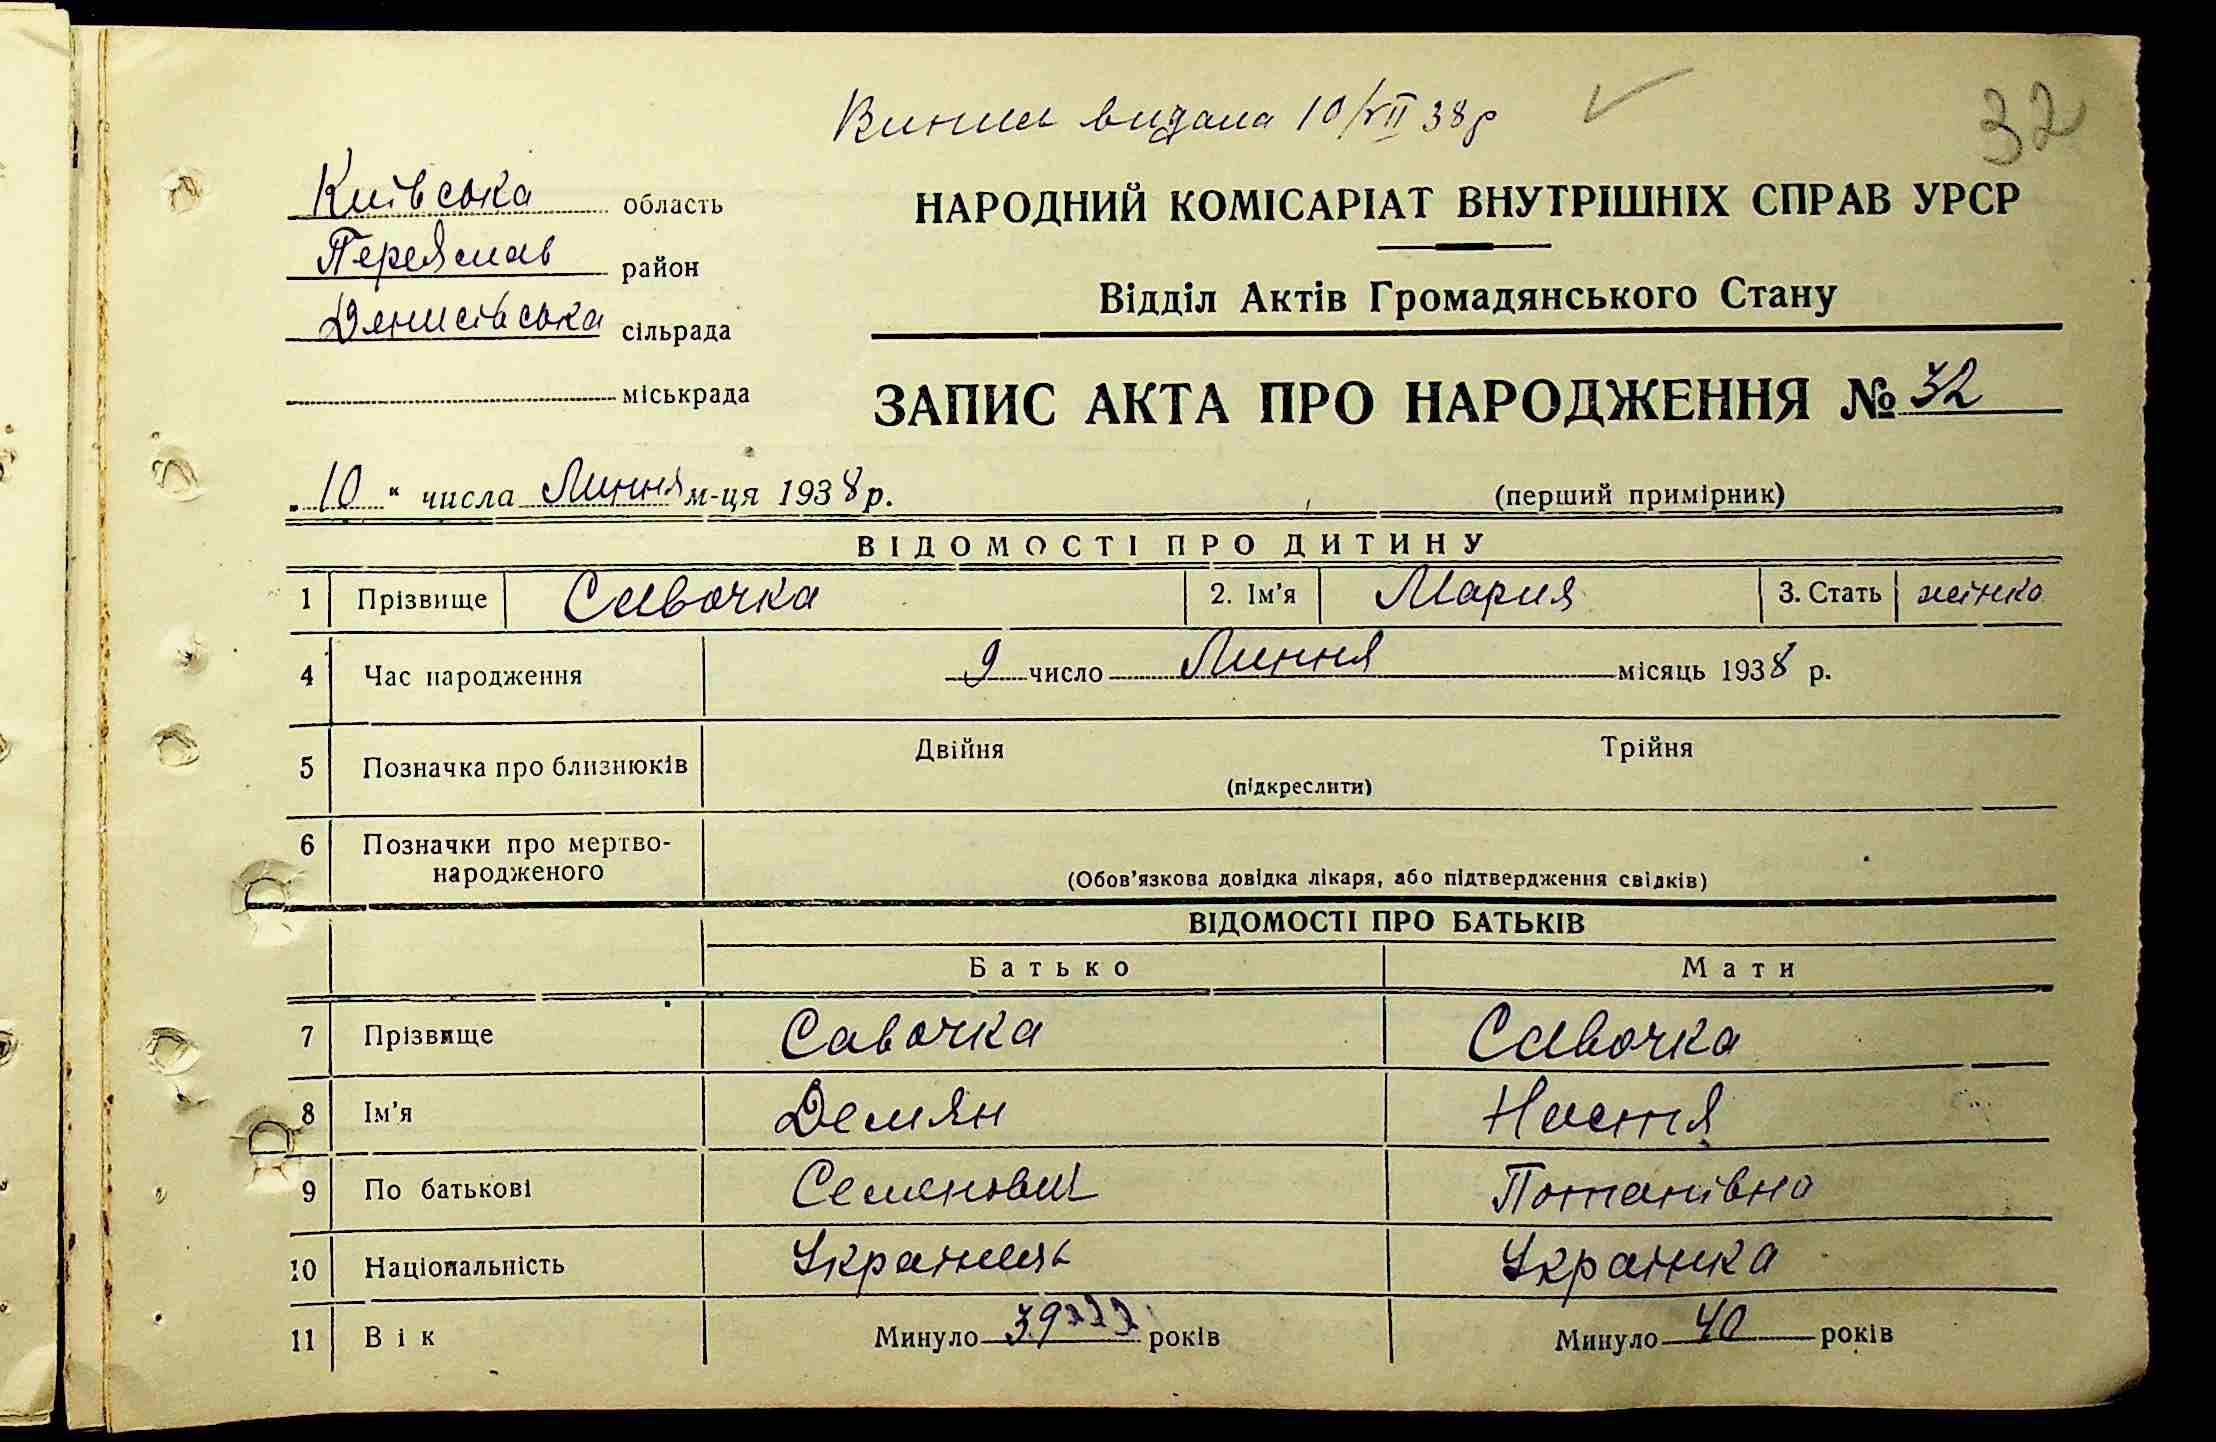 Випись видана 10/VII 38р
32
Київська область
Переяслав район
Денисівська сільрада
міськрада
НАРОДНИЙ КОМІСАРІАТ ВНУТРІШНІХ СПРАВ УРСР
Відділ Актів Громадянського Стану
ЗАПИС АКТА ПРО НАРОДЖЕННЯ № 32
„10“ числа Липня м-ця 1938 р.
(перший примірник)
ВІДОМОСТІ ПРО ДИТИНУ
1 Прізвище Савочка 2. Ім'я Мария 3. Стать жінко
4 Час народження 9 число Липня місяць 1938 р.
5 Позначка про близнюків Двійня Трійня
(підкреслити)
6 Позначки про мертво-
народженого
(Обов'язкова довідка лікаря, або підтвердження свідків)
ВІДОМОСТІ ПРО БАТЬКІВ
Батько Мати
7 Прізвище Савочка Савочка
8 Ім'я Демян Настя
9 По батькові Семенович Потапівна
10 Національність Українець Українка
11 Вік Минуло 39 років Минуло 40 років